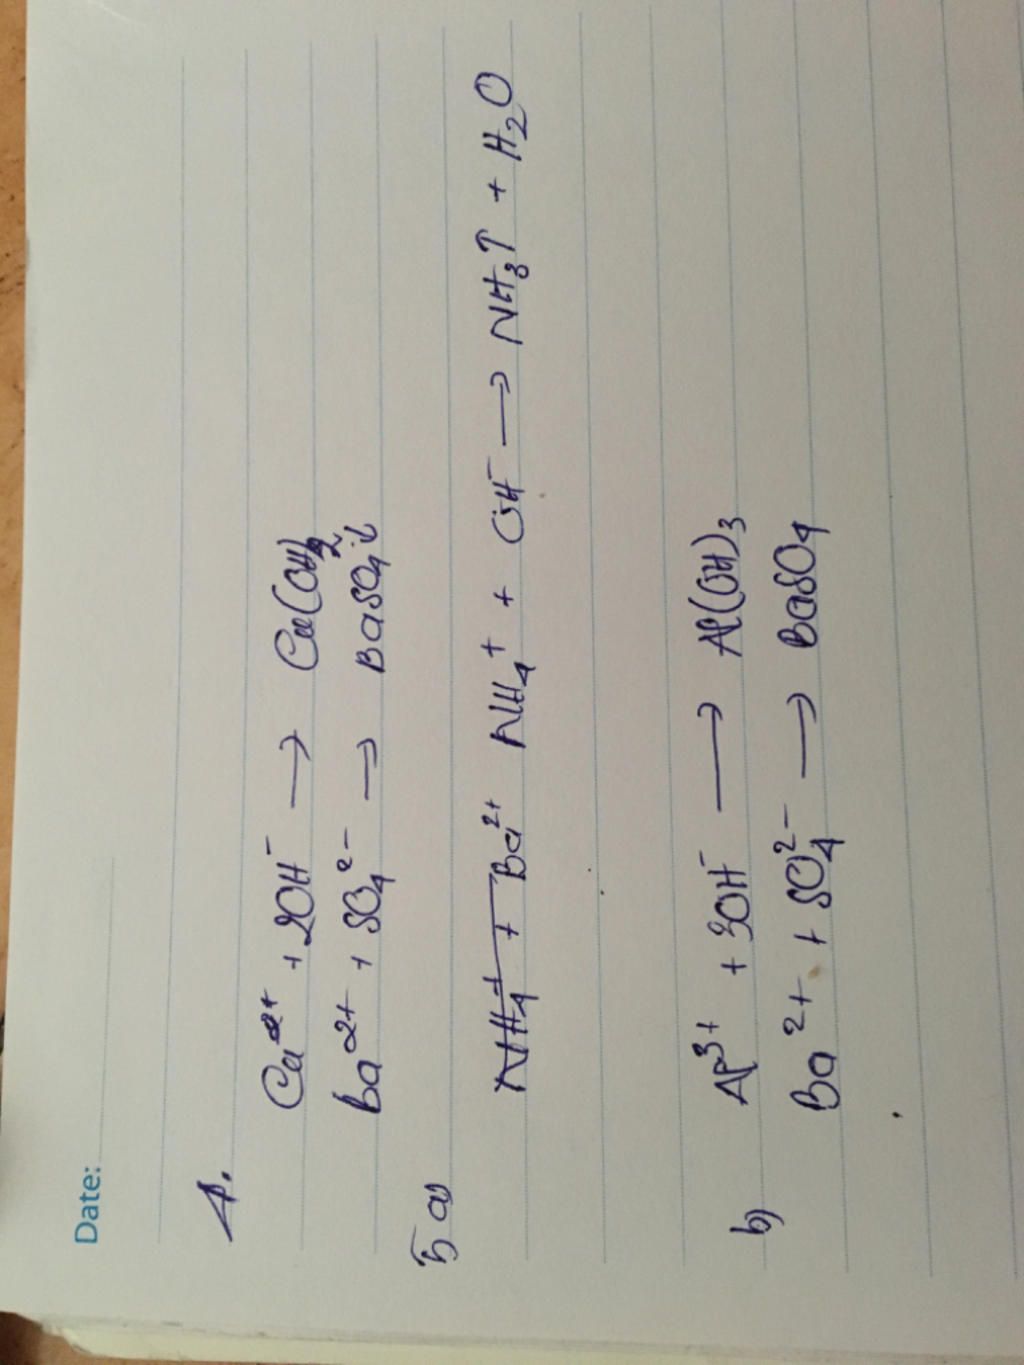 Date:
4.
Ca²⁺ + 2OH⁻ → Ca(OH)₂
Ba²⁺ + SO₄²⁻ → BaSO₄↓
5 a) NH₄⁺ + Ba²⁺ NH₄⁺ + OH⁻ → NH₃↑ + H₂O
b) Al³⁺ + 3OH⁻ → Al(OH)₃
Ba²⁺ + SO₄²⁻ → BaSO₄